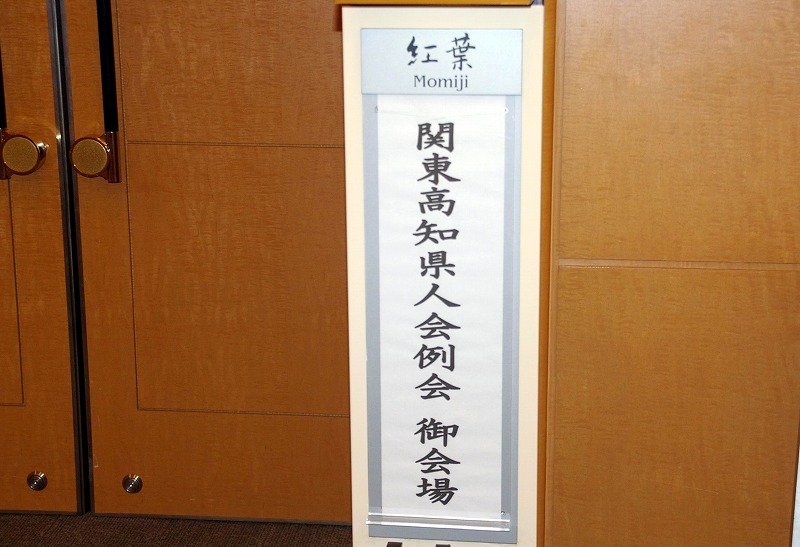 紅葉
Momiji
関東高知県人会例会 御会場